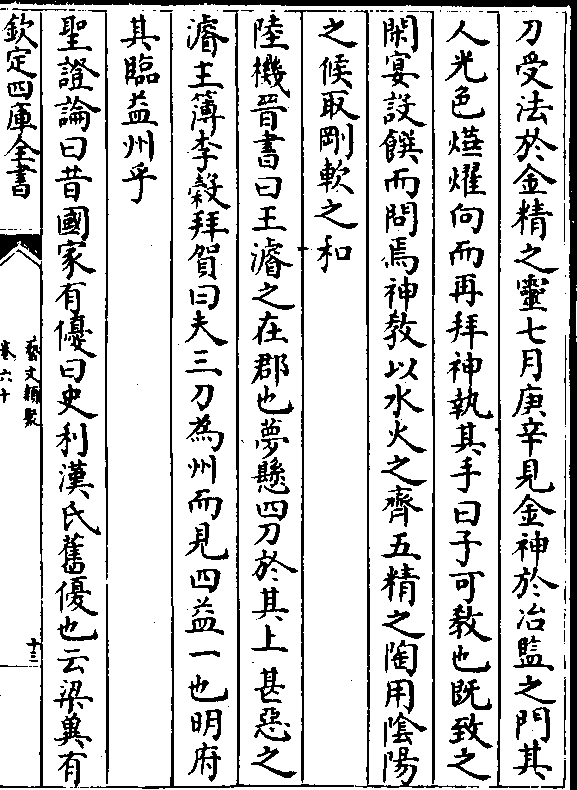 刀受法於金精之靈七月庚辛見金神於冶監之門其
人光色煒燿向而再拜神執其手曰子可教也既致之
閑宴設饌而問焉神教以水火之齊五精之陶用陰陽
之候取剛軟之和
陸機晉書曰王濬之在郡也夢懸四刀於其上甚惡之
濬主簿李毅拜賀曰夫三刀為州而見四益一也明府
其臨益州乎
聖證論曰昔國家有優曰史利漢氏舊優也云梁兾有
欽定四庫全書
藝文類聚
卷六十
十三